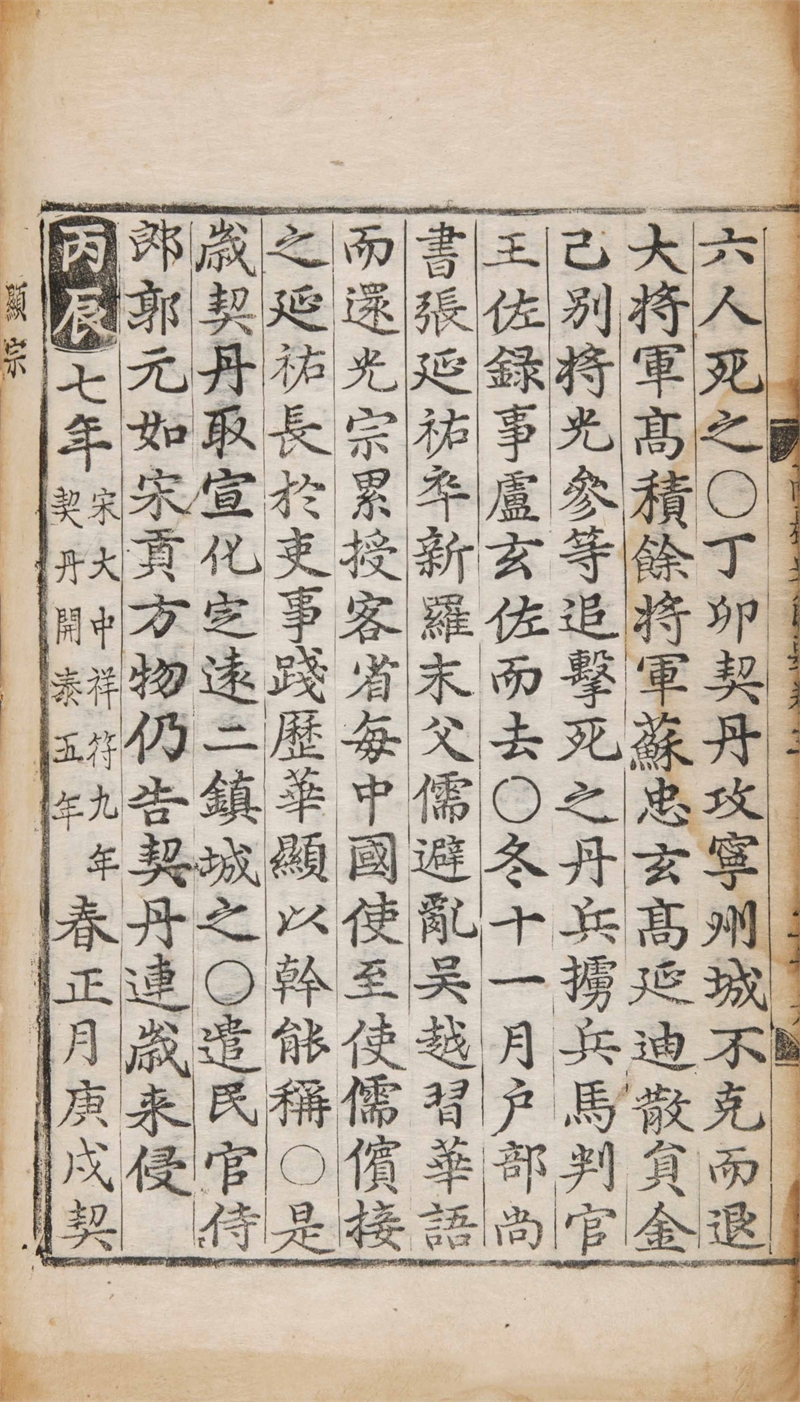 六人死之○丁卯契丹攻寧州城不克而退
大將軍髙積餘將軍蘇忠玄髙延迪散負金
己別將光叅等追擊死之丹兵擄兵馬判官
王佐録事盧玄佐而去○冬十一月户部尚
書張延祐卒新羅末父儒避亂吴越習華語
而還光宗累授客省每中國使至使儒儐接
之延祐長於吏事踐歷華顯以幹能稱○是
歲契丹取宣化定遠二鎮城之○遣民官侍
郎郭元如宋貢方物仍告契丹連歲来侵
丙辰七年宋大中祥符九年契丹開泰五年春正月庚戌契
顯宗